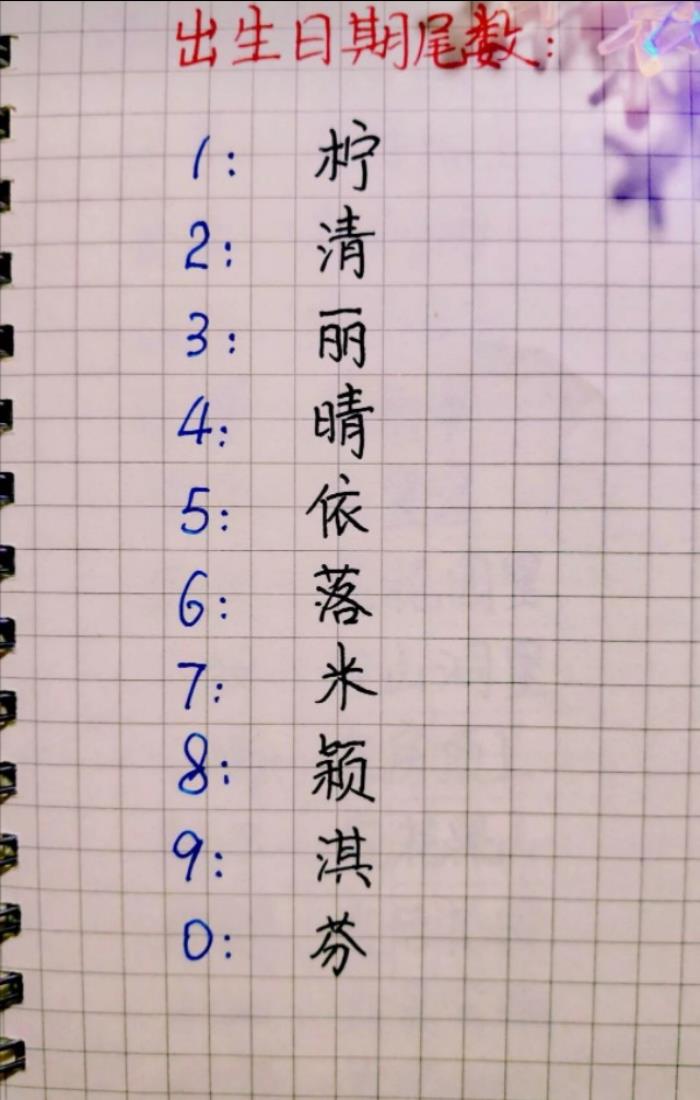 出生日期尾数:
1: 柠
2: 清
3: 丽
4: 晴
5: 依
6: 落
7: 米
8: 颖
9: 淇
0: 芬